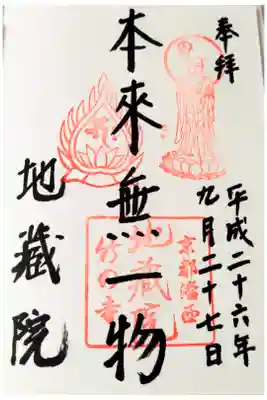 奉拝
平成二十六年
九月二十七日
本來無一物
地蔵院
京都洛西
地蔵院
竹の寺